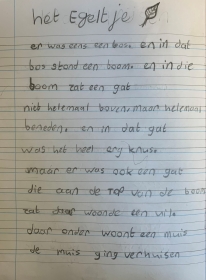 het Egeltje
er was eens een bos. en in dat
bos stond een boom. en in die
boom zat een gat
niet helemaal boven, maar helemaal
beneden. en in dat gat
was het heel erg knus.
maar er was ook een gat
die aan de TOP van de boom
zat daar woonde een uil.
daar onder woont een muis
de muis ging verhuisen